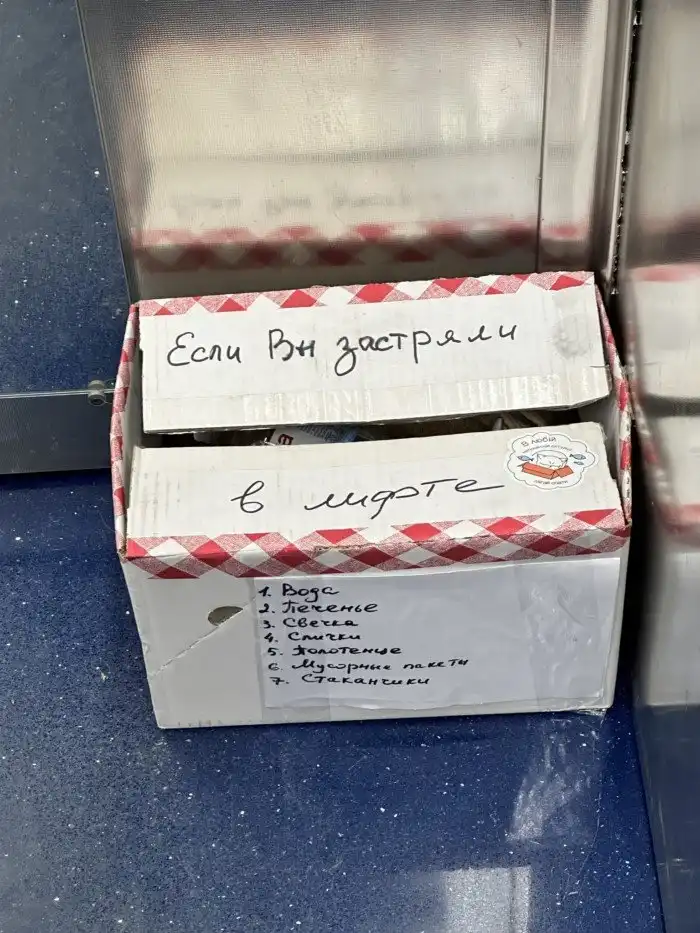 Если Вы застряли
в лифте
В любій
1. Вода
2. Печенье
3. Свечка
4. Спички
5. Полотенце
6. Мусорные пакеты
7. Стаканчики